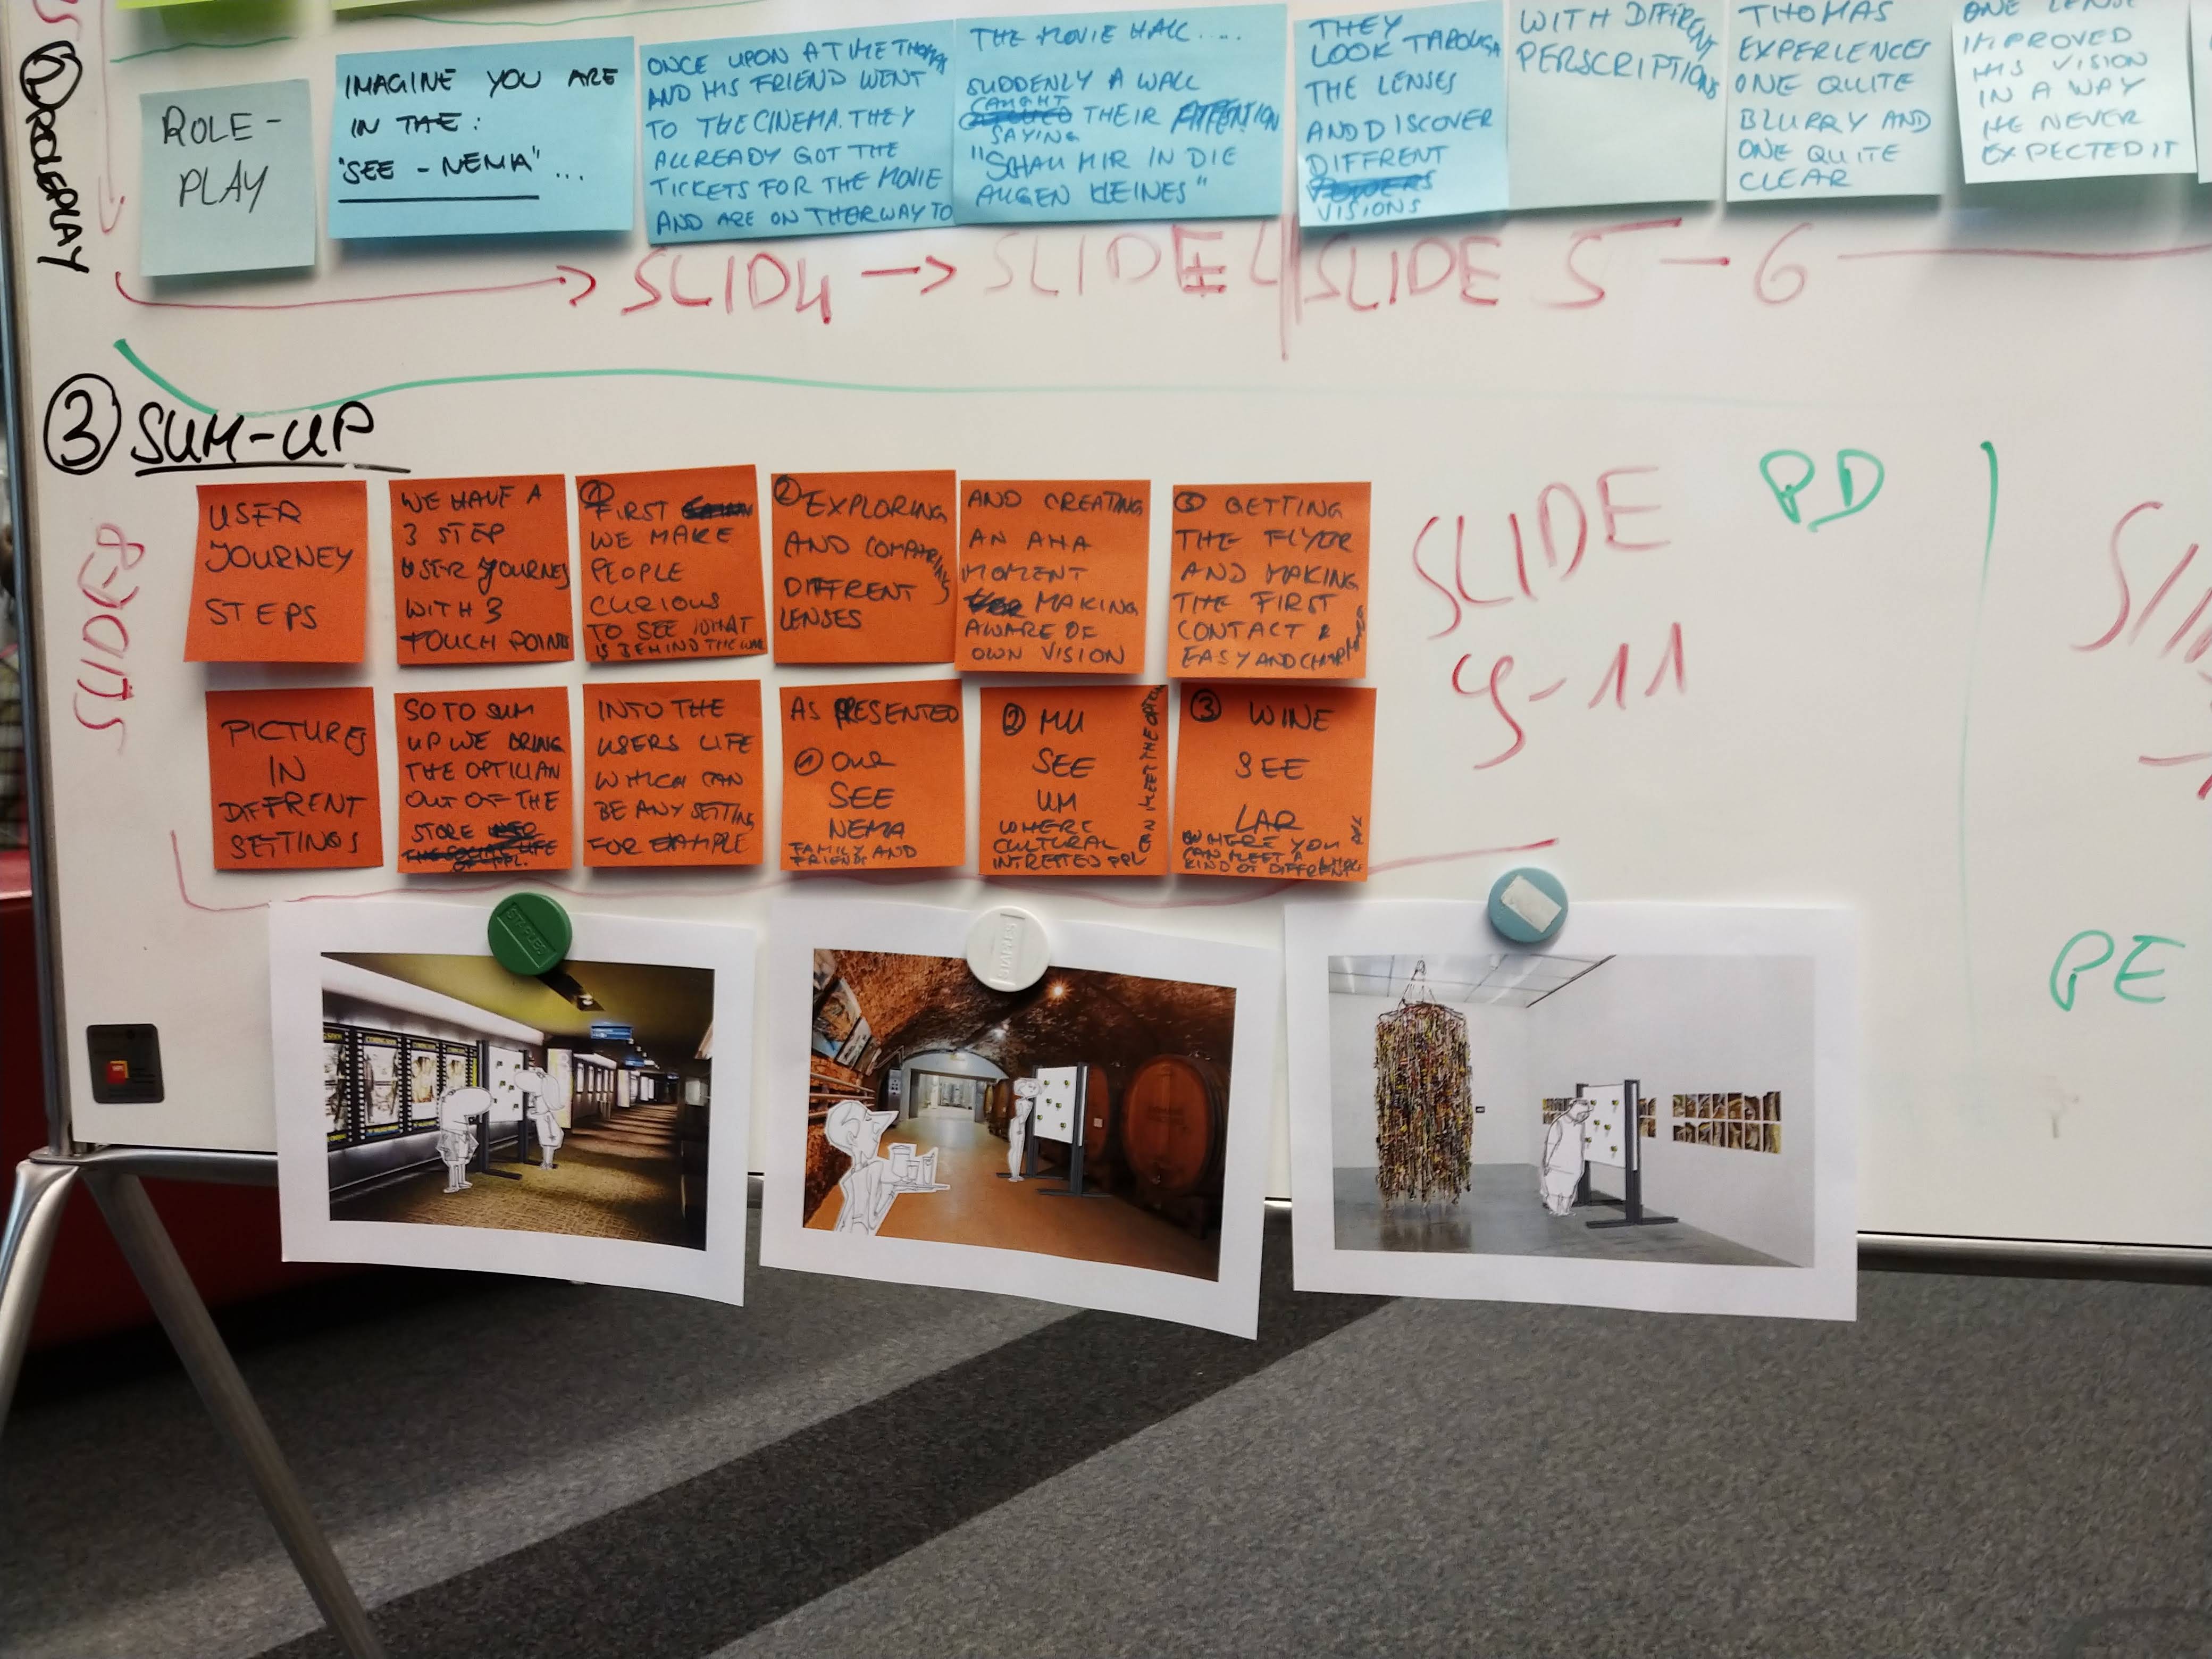 ② ROLEPLAY
ROLE-
PLAY
IMAGINE YOU ARE
IN THE:
"SEE - NEMA"...
ONCE UPON A TIME THOMAS
AND HIS FRIEND WENT
TO THE CINEMA. THEY
ALLREADY GOT THE
TICKETS FOR THE MOVIE
AND ARE ON THER WAY TO
THE MOVIE HALL.....
SUDDENLY A WALL
CAUGHT THEIR ATTENTION
SAYING
"SCHAU MIR IN DIE
AUGEN KLEINES"
THEY
LOOK THROUGH
THE LENSES
AND DISCOVER
DIFFRENT
VISIONS
WITH DIFFRENT
PERSCRIPTIONS
THOMAS
EXPERIENCES
ONE QUITE
BLURRY AND
ONE QUITE
CLEAR
ONE LENSE
IMPROVED
HIS VISION
IN A WAY
HE NEVER
EXPECTED IT
SLID4 → SLIDE 4 SLIDE 5 - 6
③ SUM-UP
SLIDE 8
USER
JOURNEY
STEPS
WE HAVE A
3 STEP
USER JOURNEY
WITH 3
TOUCH POINTS
① FIRST
WE MAKE
PEOPLE
CURIOUS
TO SEE WHAT
IS BEHIND THE WALL
② EXPLORING
AND COMPARING
DIFFRENT
LENSES
AND CREATING
AN AHA
MOMENT
MAKING
AWARE OF
OWN VISION
③ GETTING
THE FLYER
AND MAKING
THE FIRST
CONTACT &
EASY AND
SLIDE
9-11
PD
PICTURES
IN
DIFFRENT
SETTINGS
SO TO SUM
UP WE BRING
THE OPTICIAN
OUT OF THE
STORE
INTO THE
USERS LIFE
WHICH CAN
BE ANY SETTING
FOR EXAMPLE
AS PRESENTED
① OUR
SEE
NEMA
FAMILY AND
FRIENDS
② MU
SEE
UM
WHERE
CULTURAL
INTRESTED PPL
CAN MEET THE OPTICIAN
③ WINE
SEE
LAR
WHERE YOU
CAN MEET A WHOLE
KIND OF DIFFRENT
PE
STAPLES
COMING SOON